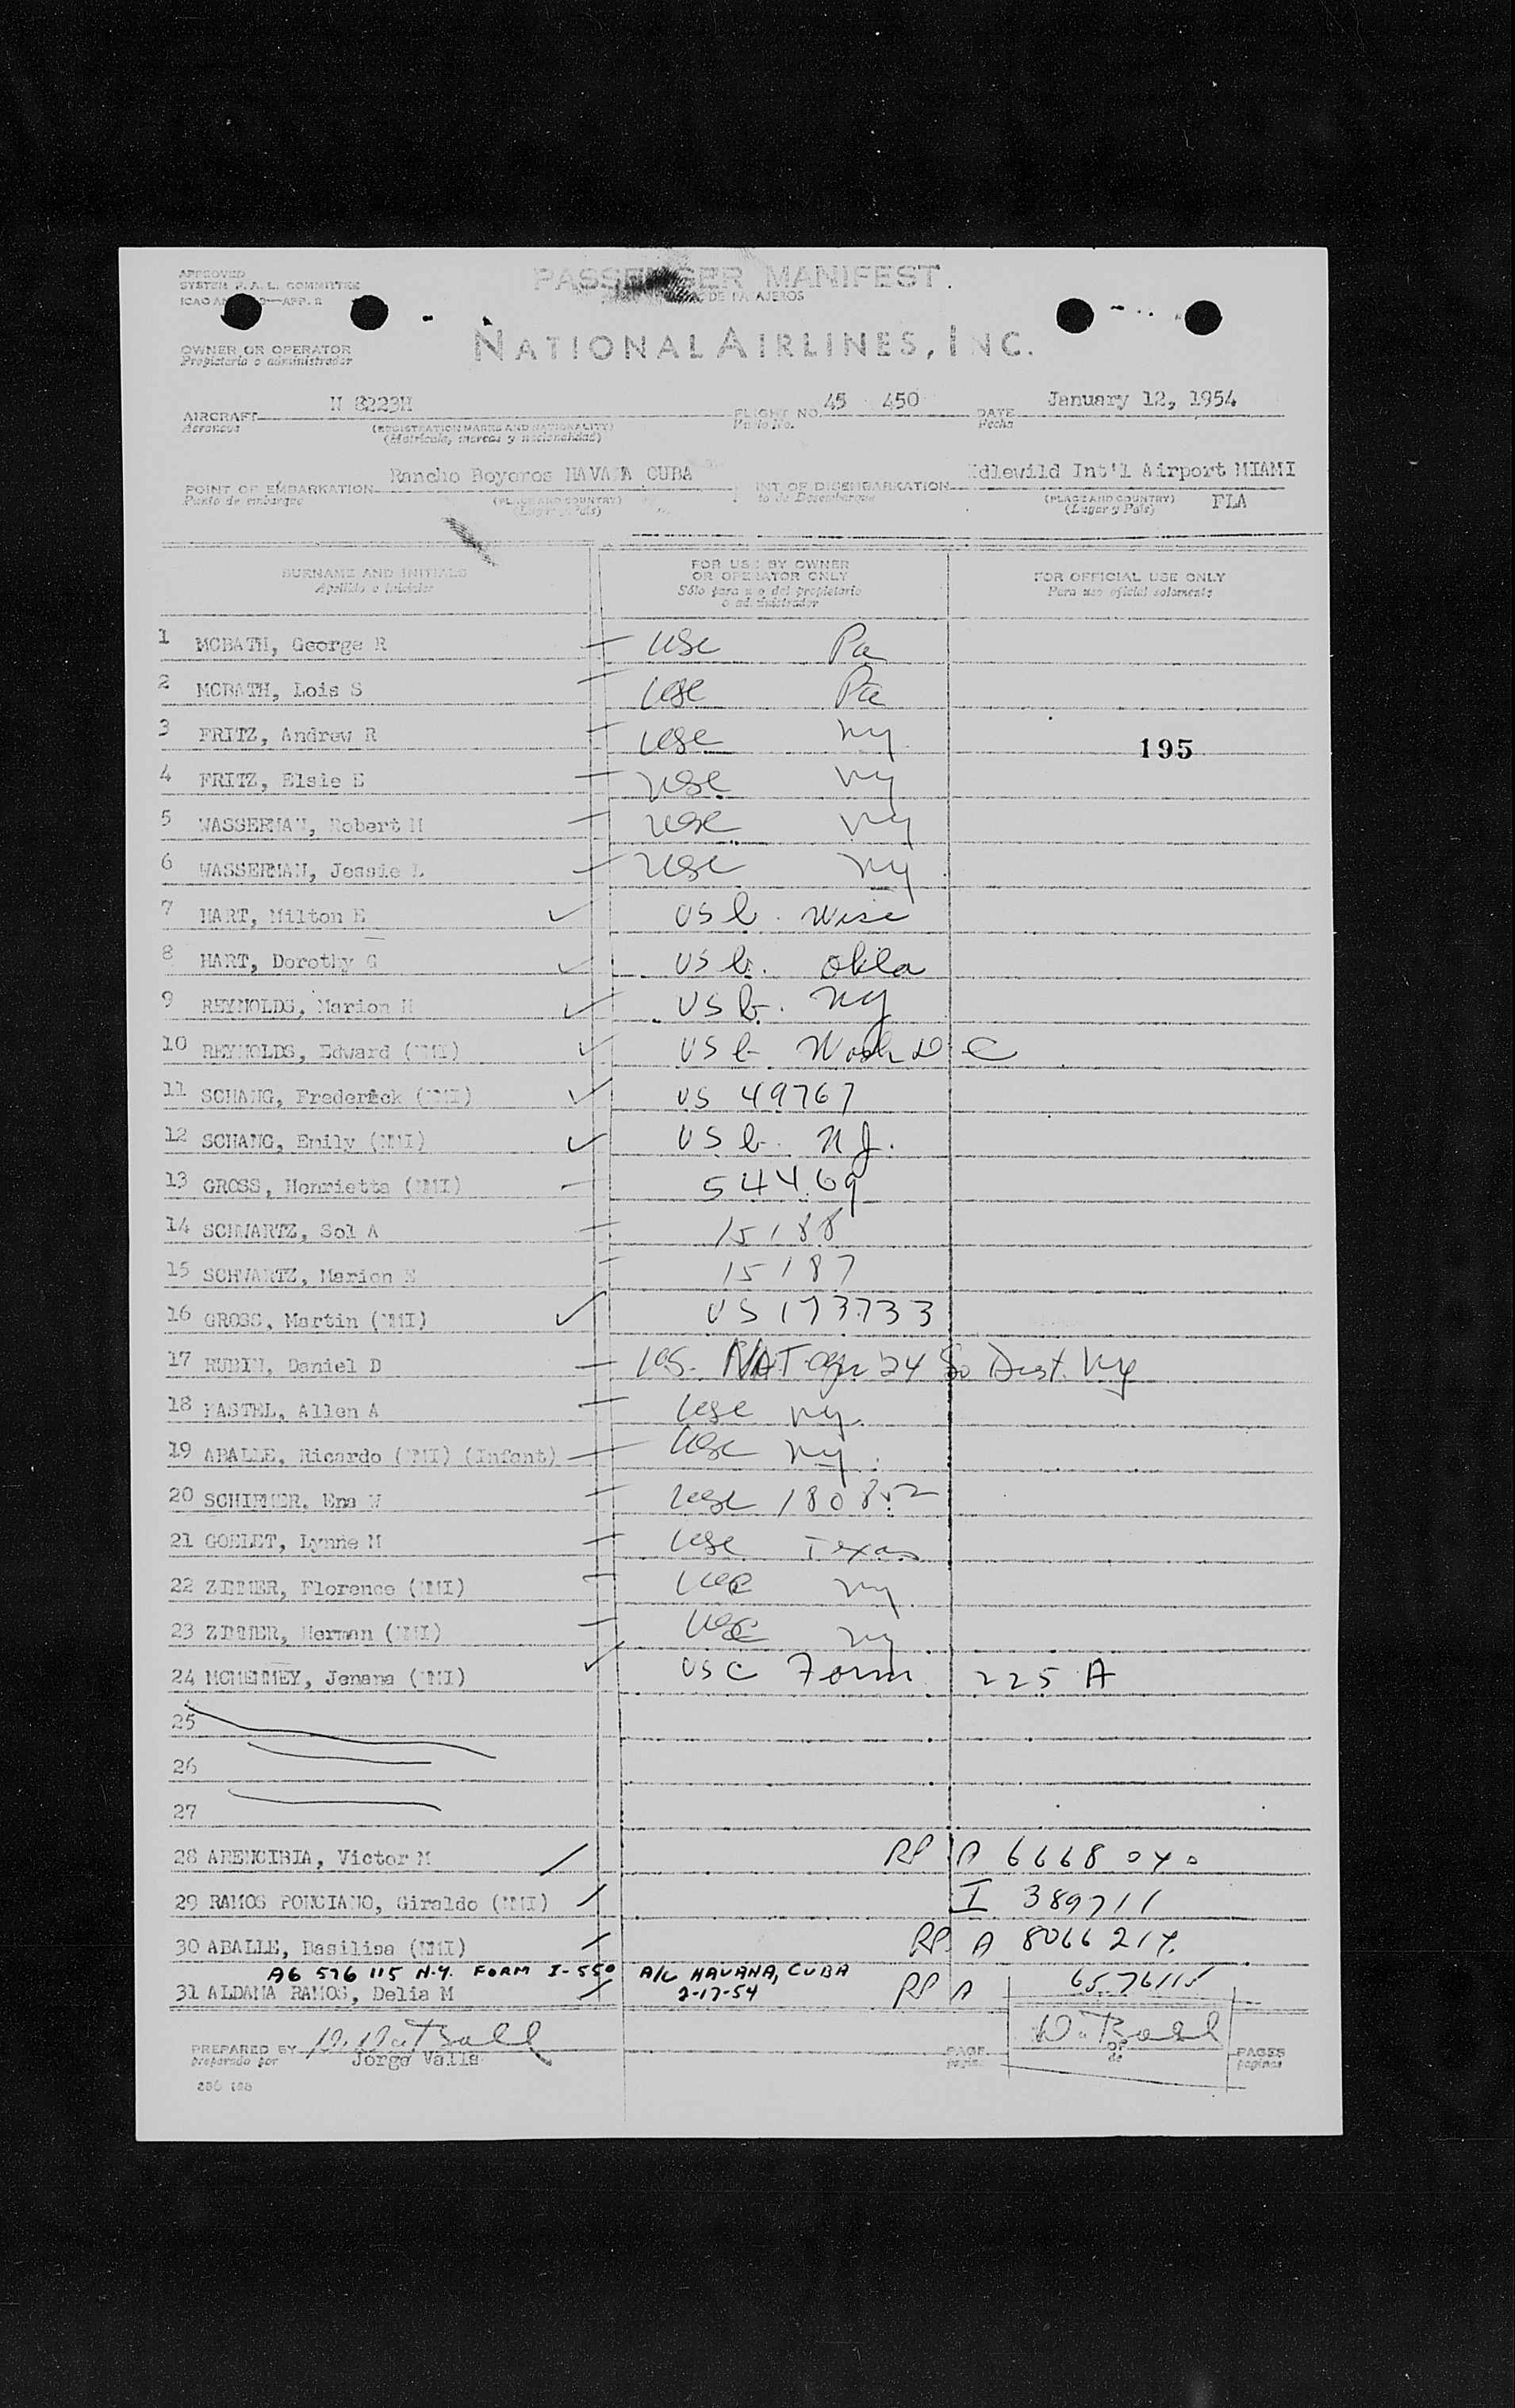 APPROVED
SYSTEM F.A.L. COMMITTEE
ICAO APP. 2
PASSENGER MANIFEST
DE PASAJEROS
NATIONAL AIRLINES, INC.
OWNER OR OPERATOR
Propietario o administrador
AIRCRAFT N 8223H FLIGHT NO. 45 450 DATE January 12, 1954
Aeronave (REGISTRATION MARKS AND NATIONALITY) Vuelo No. Fecha
(Matricula, marcas y nacionalidad)
POINT OF EMBARKATION Rancho Boyeros HAVANA CUBA INT OF DISEMBARKATION Idlewild Int'l Airport MIAMI
Punto de embarque (PLACE AND COUNTRY) to de Desembarque (PLACE AND COUNTRY) FLA
(Lugar y Pais) (Lugar y Pais)
SURNAME AND INITIALS FOR USE BY OWNER OR OPERATOR ONLY FOR OFFICIAL USE ONLY
Apellido e iniciales Sólo para uso del propietario o administrador Para uso oficial solamente
1 MCBATH, George R USC Pa
2 MCBATH, Lois S USC Pa
3 FRITZ, Andrew R USC NY
195
4 FRITZ, Elsie E USC NY
5 WASSERMAN, Robert H USC NY
6 WASSERMAN, Jessie L USC NY
7 HART, Milton E US b. Wisc
8 HART, Dorothy G US b. Okla
9 REYNOLDS, Marion H US b. NY
10 REYNOLDS, Edward (NMI) US b Wash D C
11 SCHANG, Frederick (NMI) US 49767
12 SCHANG, Emily (NMI) US b. N.J.
13 GROSS, Henrietta (NMI) 54469
14 SCHWARTZ, Sol A 15188
15 SCHWARTZ, Marion E 15187
16 GROSS, Martin (NMI) US 173733
17 RUBIN, Daniel D NAT 24 So Dist. NY
18 KASTEL, Allen A USC NY
19 ABALLE, Ricardo (NMI) (Infant) USC NY
20 SCHIRMER, Ena W USC 180852
21 GOELET, Lynne M USC Texas
22 ZIMMER, Florence (NMI) USC NY
23 ZIMMER, Herman (NMI) USC NY
24 MCMENMEY, Jenana (NMI) USC Form 225 A
25
26
27
28 ARENCIBIA, Victor M RP A 6668040
29 RAMOS PONCIANO, Giraldo (NMI) I 389711
30 ABALLE, Basilisa (NMI) RP A 8066214
A6 576 115 N.Y. FORM I-550 A/C HAVANA, CUBA
31 ALDAMA RAMOS, Delia M 2-17-54 RP A 6576115
PREPARED BY Jorge Valls PAGE OF PAGES
preparado por pagina de paginas